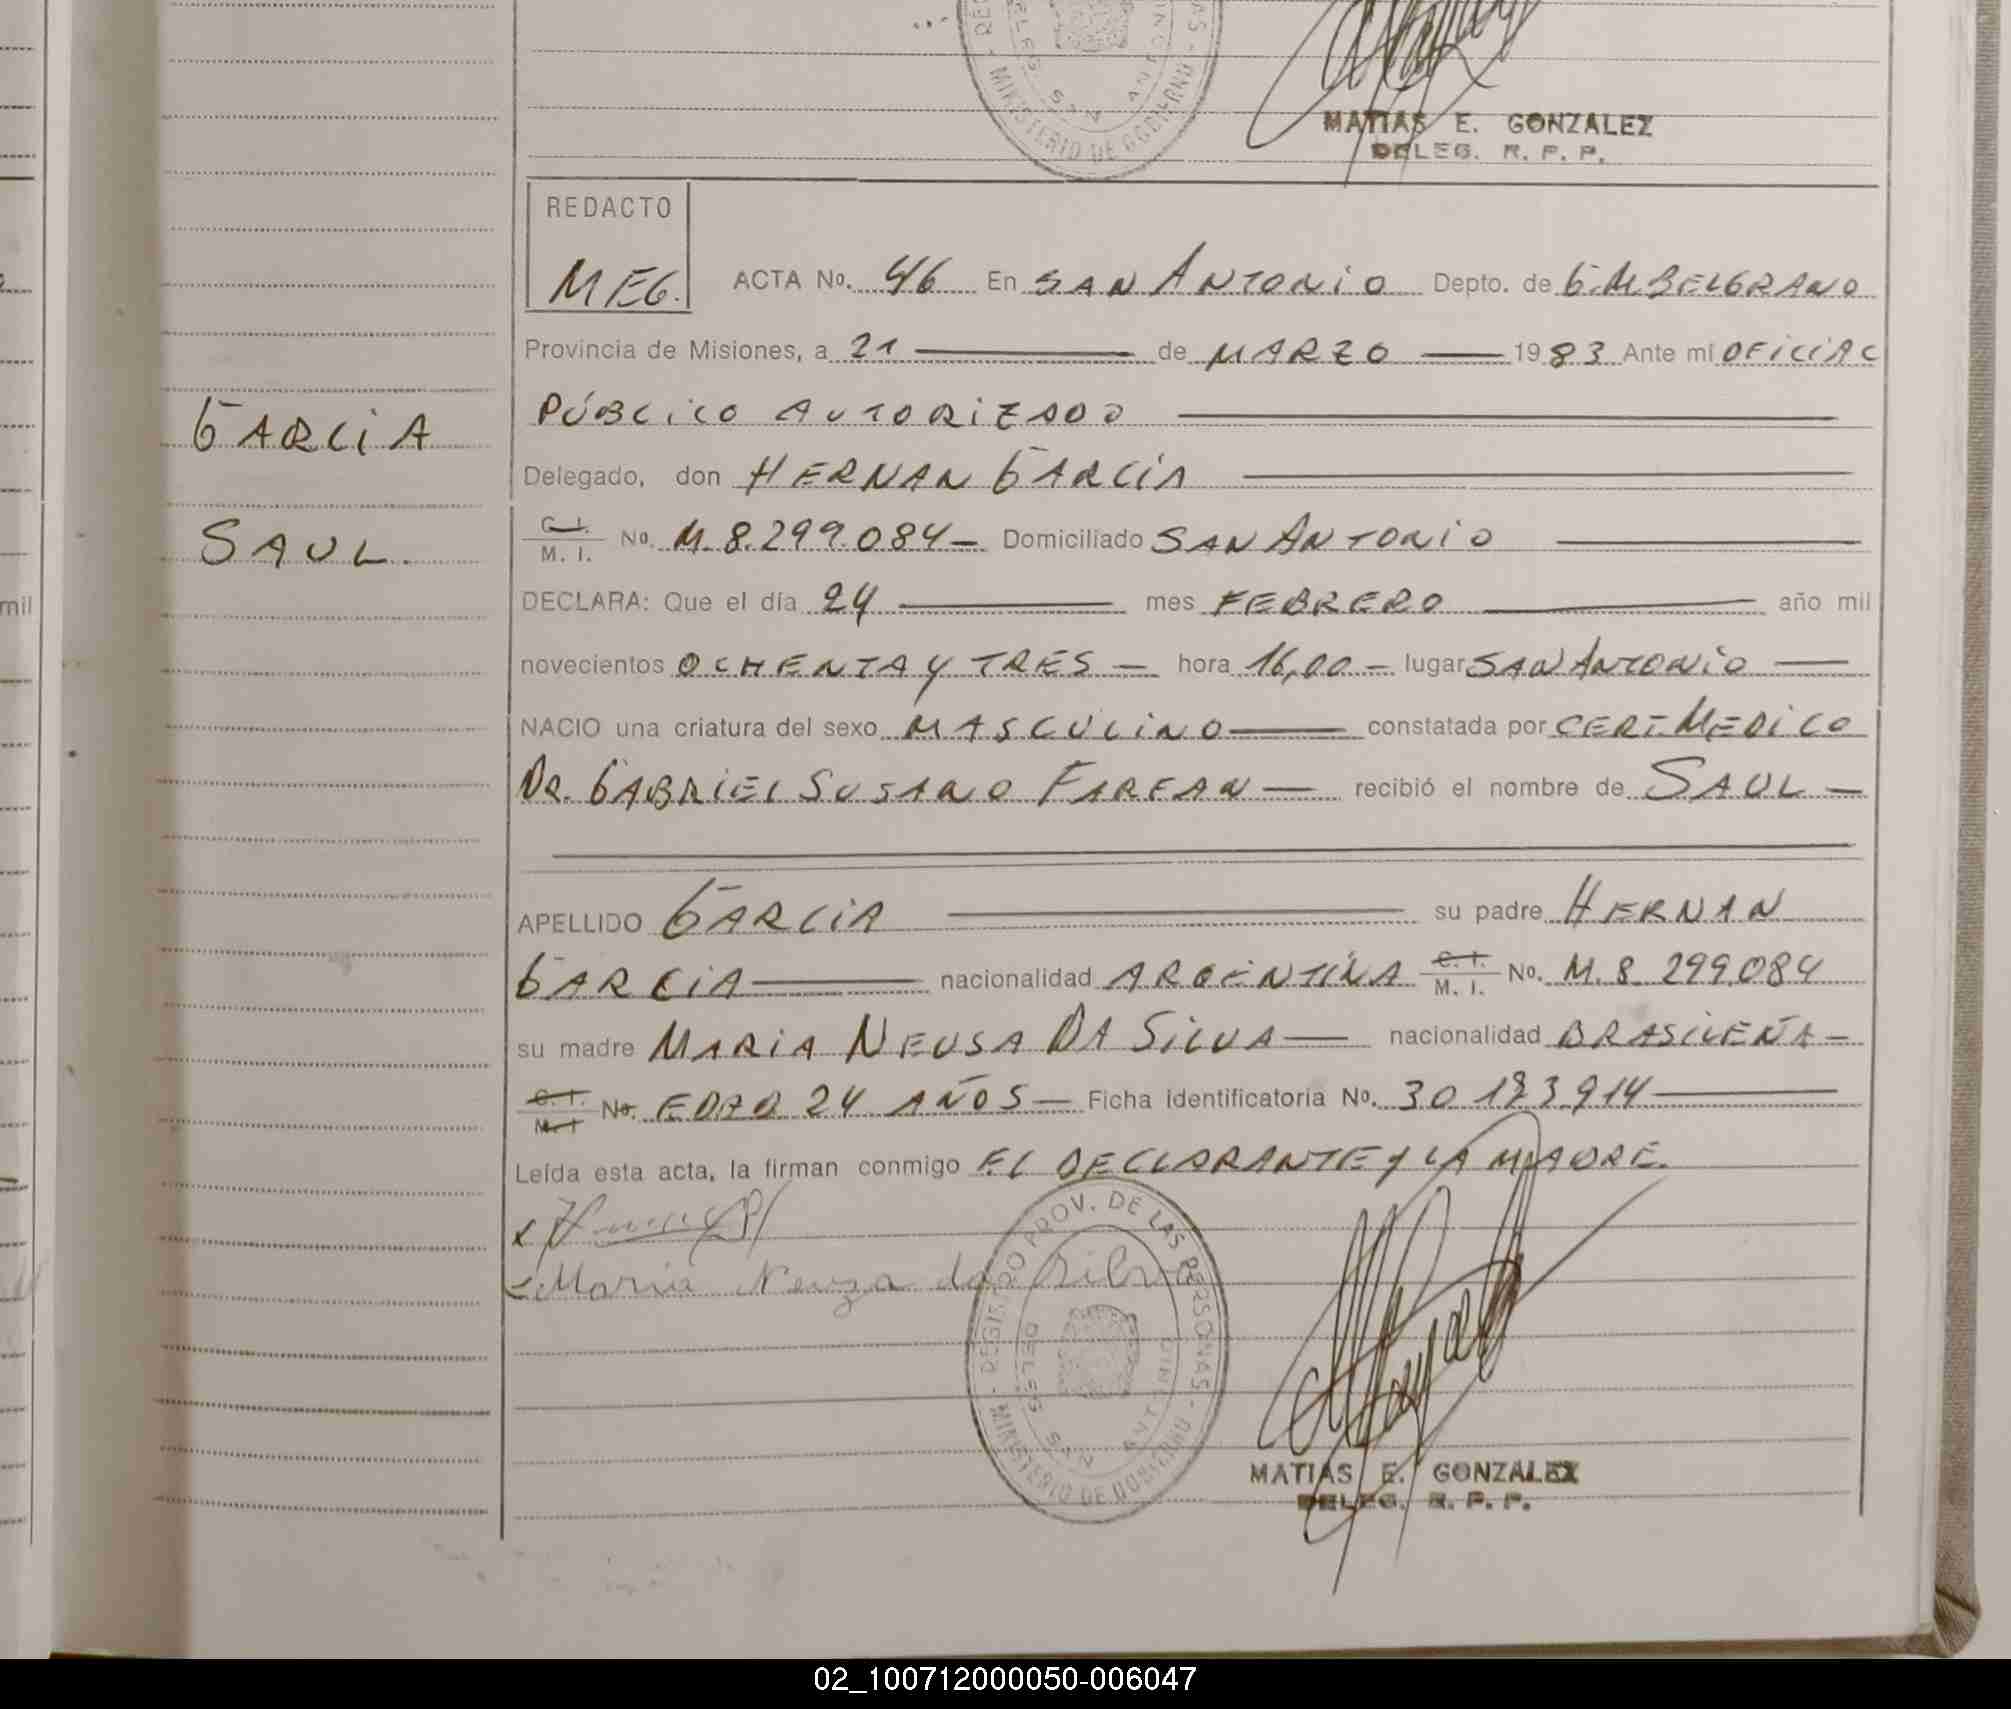 MINISTERIO DE GOBIERNO
SAN ANTONIO
MATIAS E. GONZALEZ
DELEG. R. P. P.
REDACTO
MEG.
ACTA No. 46 En SAN ANTONIO Depto. de G.M.BELGRANO
Provincia de Misiones, a 21 — de MARZO — 1983 Ante mi OFICIAL
PÚBLICO AUTORIZADO —
GARCIA
Delegado, don HERNAN GARCIA —
C. I.
M. I. No. M. 8.299.084 — Domiciliado SAN ANTONIO —
SAUL.
DECLARA: Que el día 24 — mes FEBRERO — año mil
mil
novecientos OCHENTA Y TRES — hora 16,00 — lugar SAN ANTONIO —
NACIO una criatura del sexo MASCULINO — constatada por CERT. MEDICO
DR. GABRIEL SUSANO FARFAN — recibió el nombre de SAUL —
APELLIDO GARCIA — su padre HERNAN
GARCIA — nacionalidad ARGENTINA C. I.
M. I. No. M. 8.299.084
su madre MARIA NEUSA DA SILVA — nacionalidad BRASILEÑA —
C. I.
M. I No. EDAD 24 AÑOS — Ficha identificatoria No. 30.183.914 —
Leída esta acta, la firman conmigo EL DECLARANTE Y LA MADRE.
Maria Neuza da Silva
REGISTRO PROV. DE LAS PERSONAS
MINISTERIO DE GOBIERNO
DELEG SAN ANTONIO
MATIAS E. GONZALEZ
DELEG. R. P. P.
02_100712000050-006047